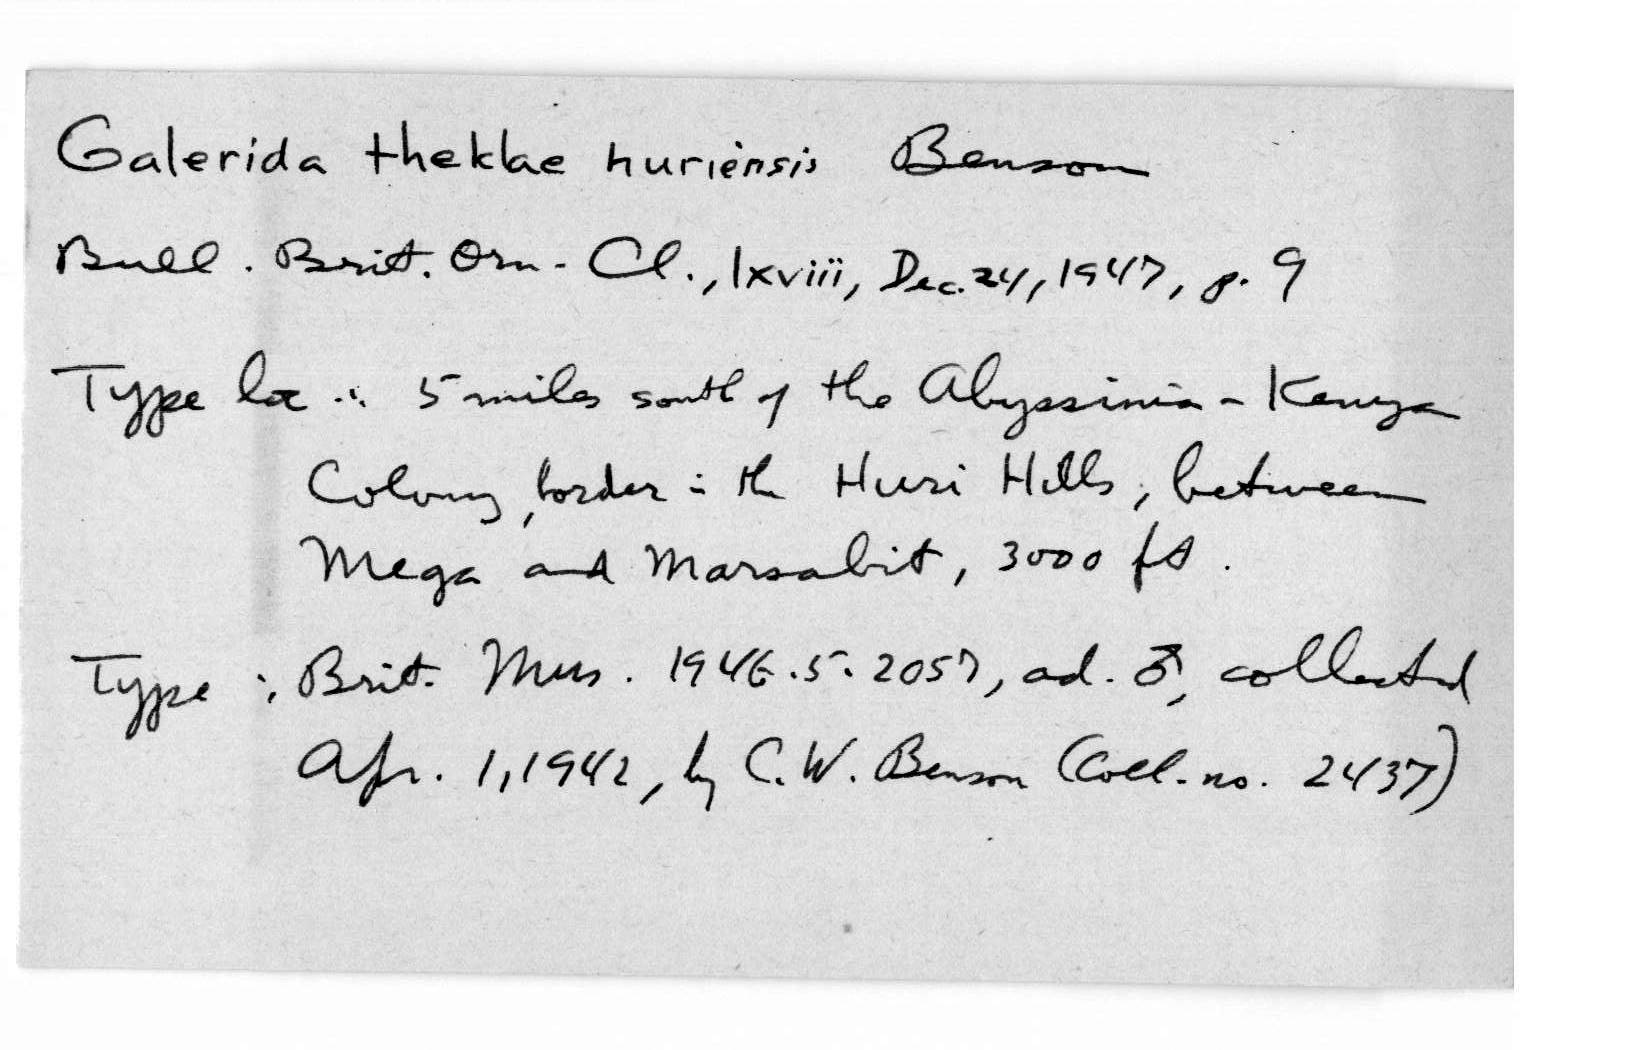 Galerida theklae huriensis Benson
Bull. Brit. Orn. Cl., lxviii, Dec. 24, 1947, p. 9
Type loc.: 5 miles south of the Abyssinia - Kenya
Colony, border in the Huri Hills, between
Mega and Marsabit, 3000 ft.
Type: Brit. Mus. 1946.5.2057, ad. ♂, collected
Apr. 1, 1942, by C. W. Benson (Coll. no. 2437)